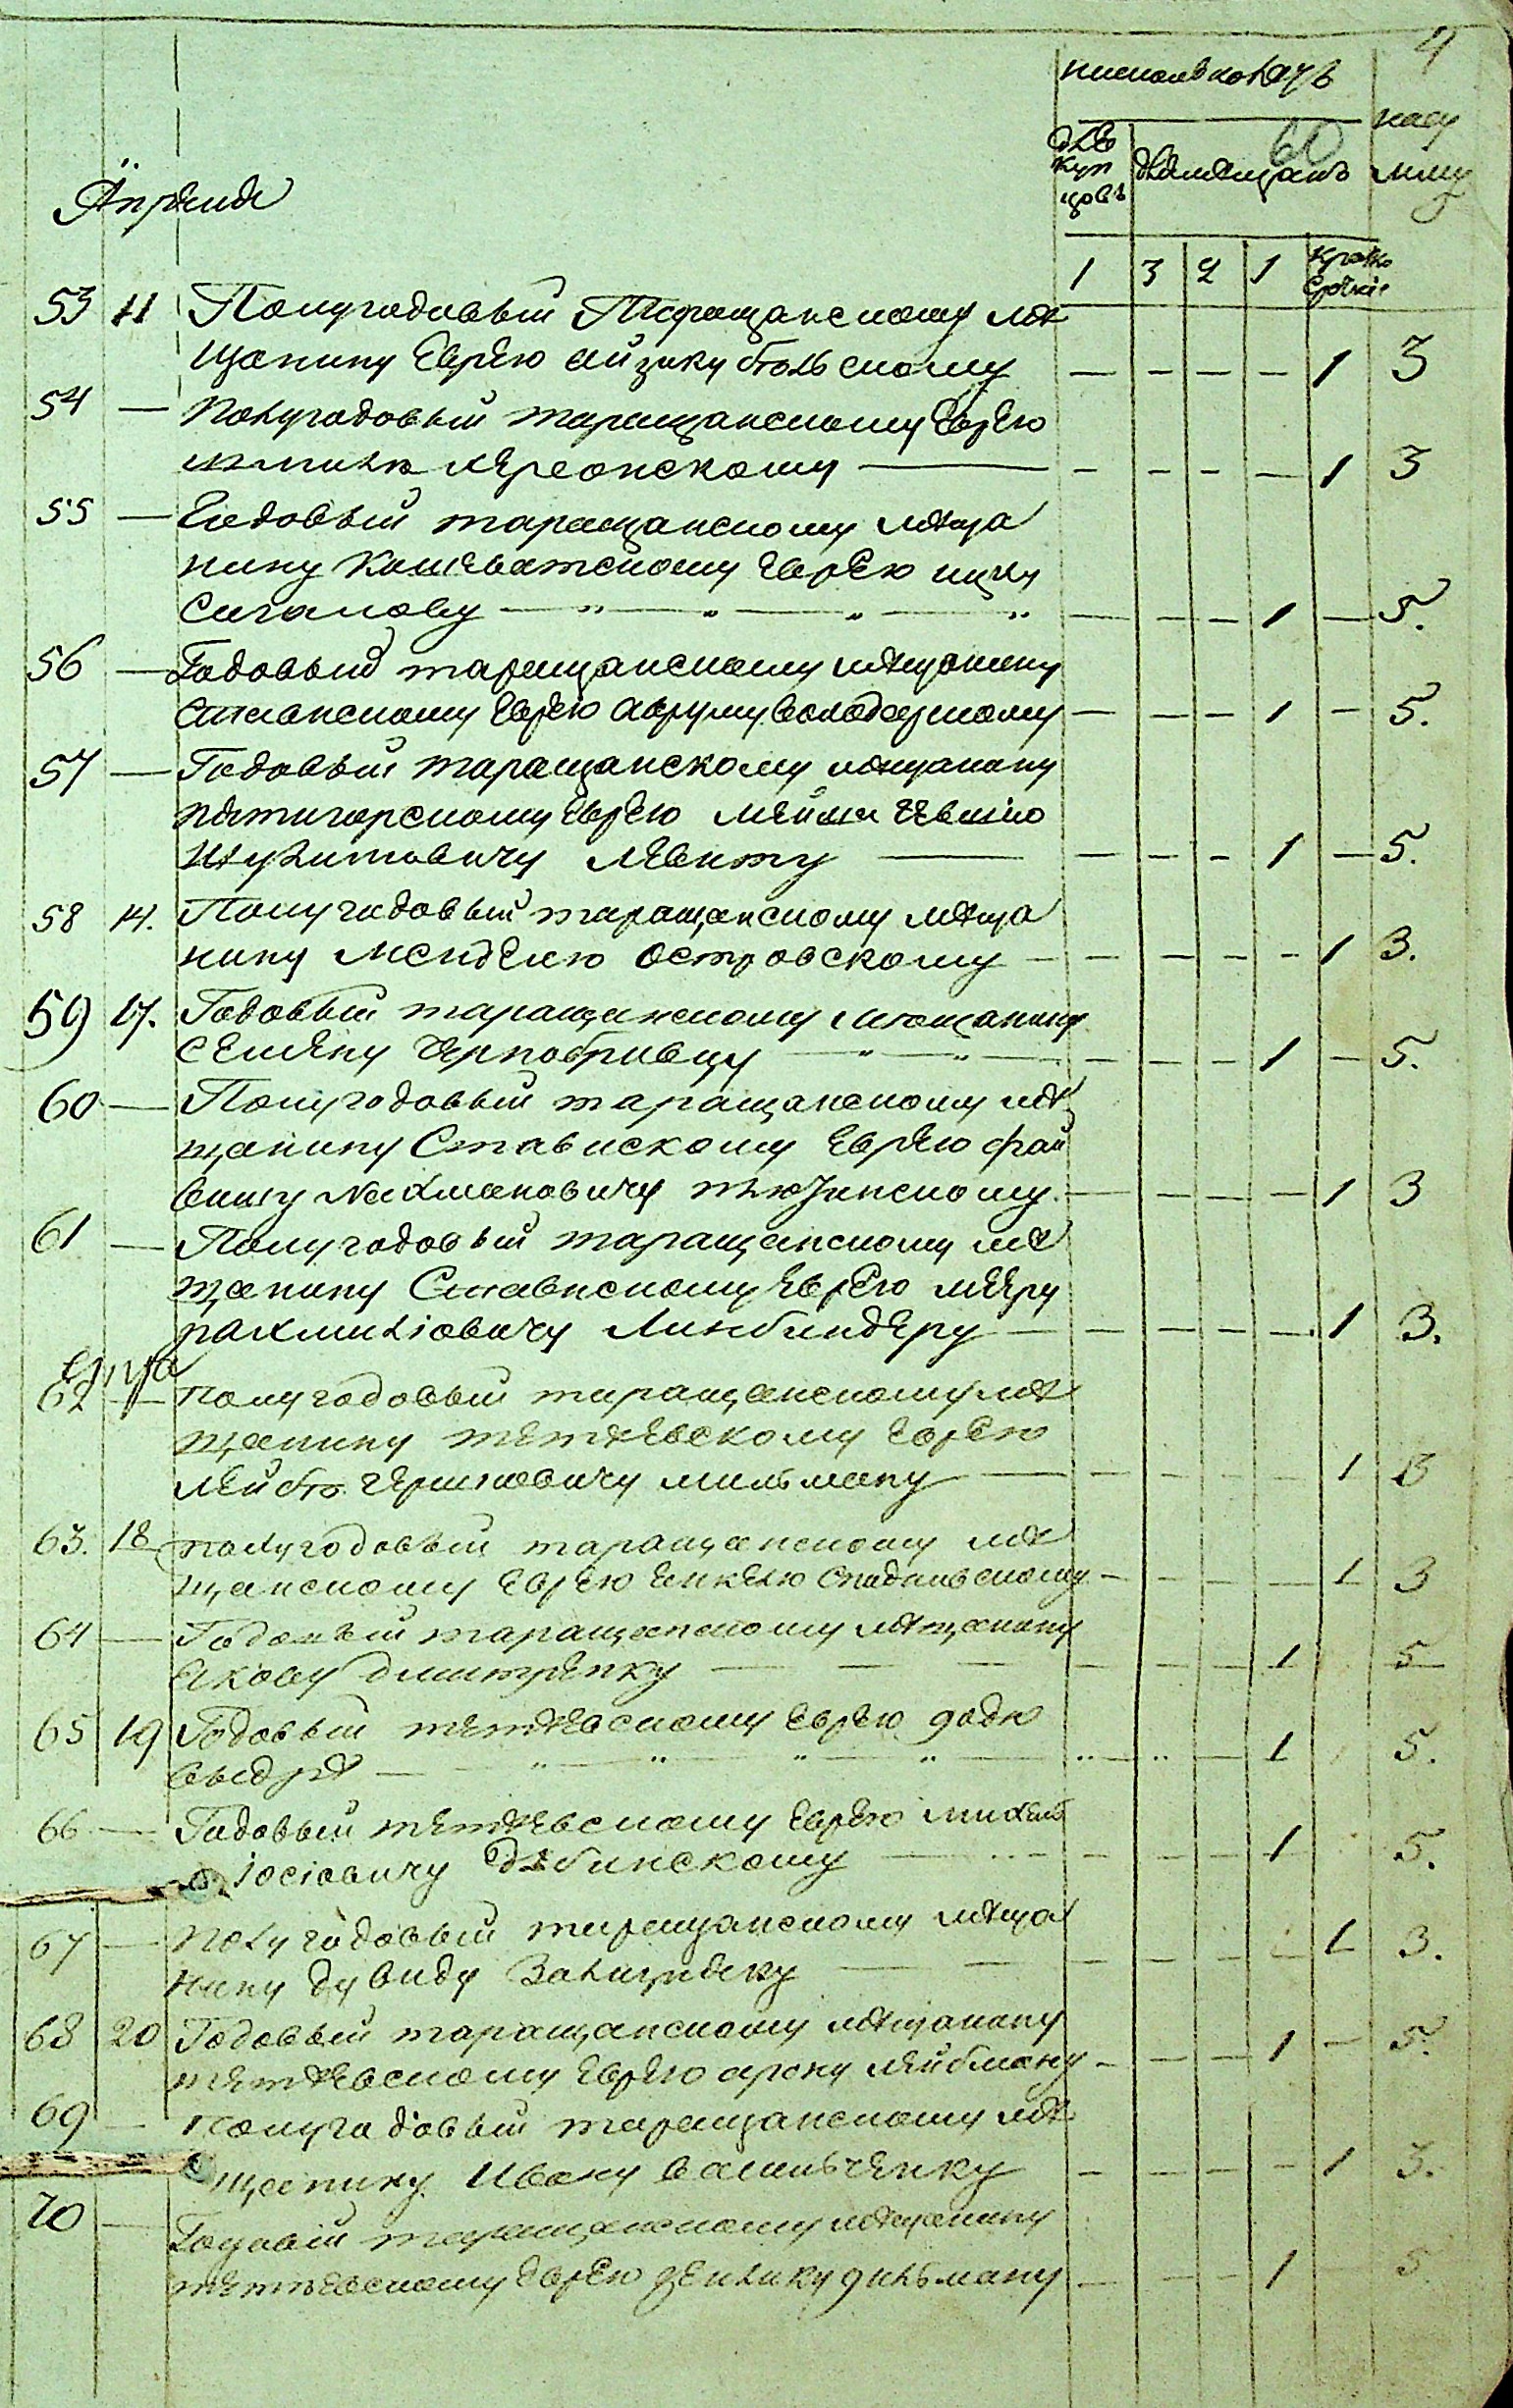 4
60
дле
куп
цовъ
Апреля
1 3 2 1 кратко
срочные
53 11 Полугодовый Таращанскому мѣ
щанину Еврею Айзику больскому — — — — 1 3
54 — Полугодовый таращанскому Еврею
Херсонскому — — — — 1 3
55 — Годовый таращанскому мѣща
нину Кошеватскому Еврею ицку
Сигалову — — — 1 — 5.
56 — Годовый таращанскому мѣщанину
Еврею Авруму Володарскому — — — 1 — 5.
57 — Годовый таращанскому мѣщанину
пятигорскому Еврею
Левиту — — — 1 — 5.
58 14. Полугодовый таращанскому мѣща
нину Менделю Островскому — — — — 1 3.
59 17. Годовый таращанскому мѣщанину
Семену Чернобривцу — — — 1 — 5.
60 — Полугодовый таращанскому мѣ
щанину Ставискому Еврею фай
вишу Нахмановичу — — — — 1 3
61 — Полугодовый таращанскому мѣ
щанину Ставискому Еврею мееру
рахмиліовичу Линбиндеру — — — — 1 3.
62 — полугодовый таращанскому мѣ
щанину тетіевскому Еврею
Лейбѣ гершковичу мильману — — — — 1 3
63. 18 полугодовый таращанскому мѣ
щанскому Еврею Енкелю — — — — 1 3
64 — Годовый таращанскому мѣщанину
Якову дмитренку — — — 1 5
65 19 Годовый тетіевскому Еврею
выдрѣ — — — 1 5.
66 — Годовый тетіевскому Еврею михелю
Іосіовичу Дубинскому — — — 1 5.
67 — Полугодовый таращанскому мѣща
нину Дувиду — — — — 1 3.
68 20 Годовый таращанскому мѣщанину
тетіевскому Еврею арону лейбману — — — 1 — 5.
69 — Полугодовый таращанскому мѣ
щанину Ивану васильченку — — — — 1 3.
70 — Годовый таращанскому мѣщанину
тетіевскому Еврею зейлику — — — 1 5